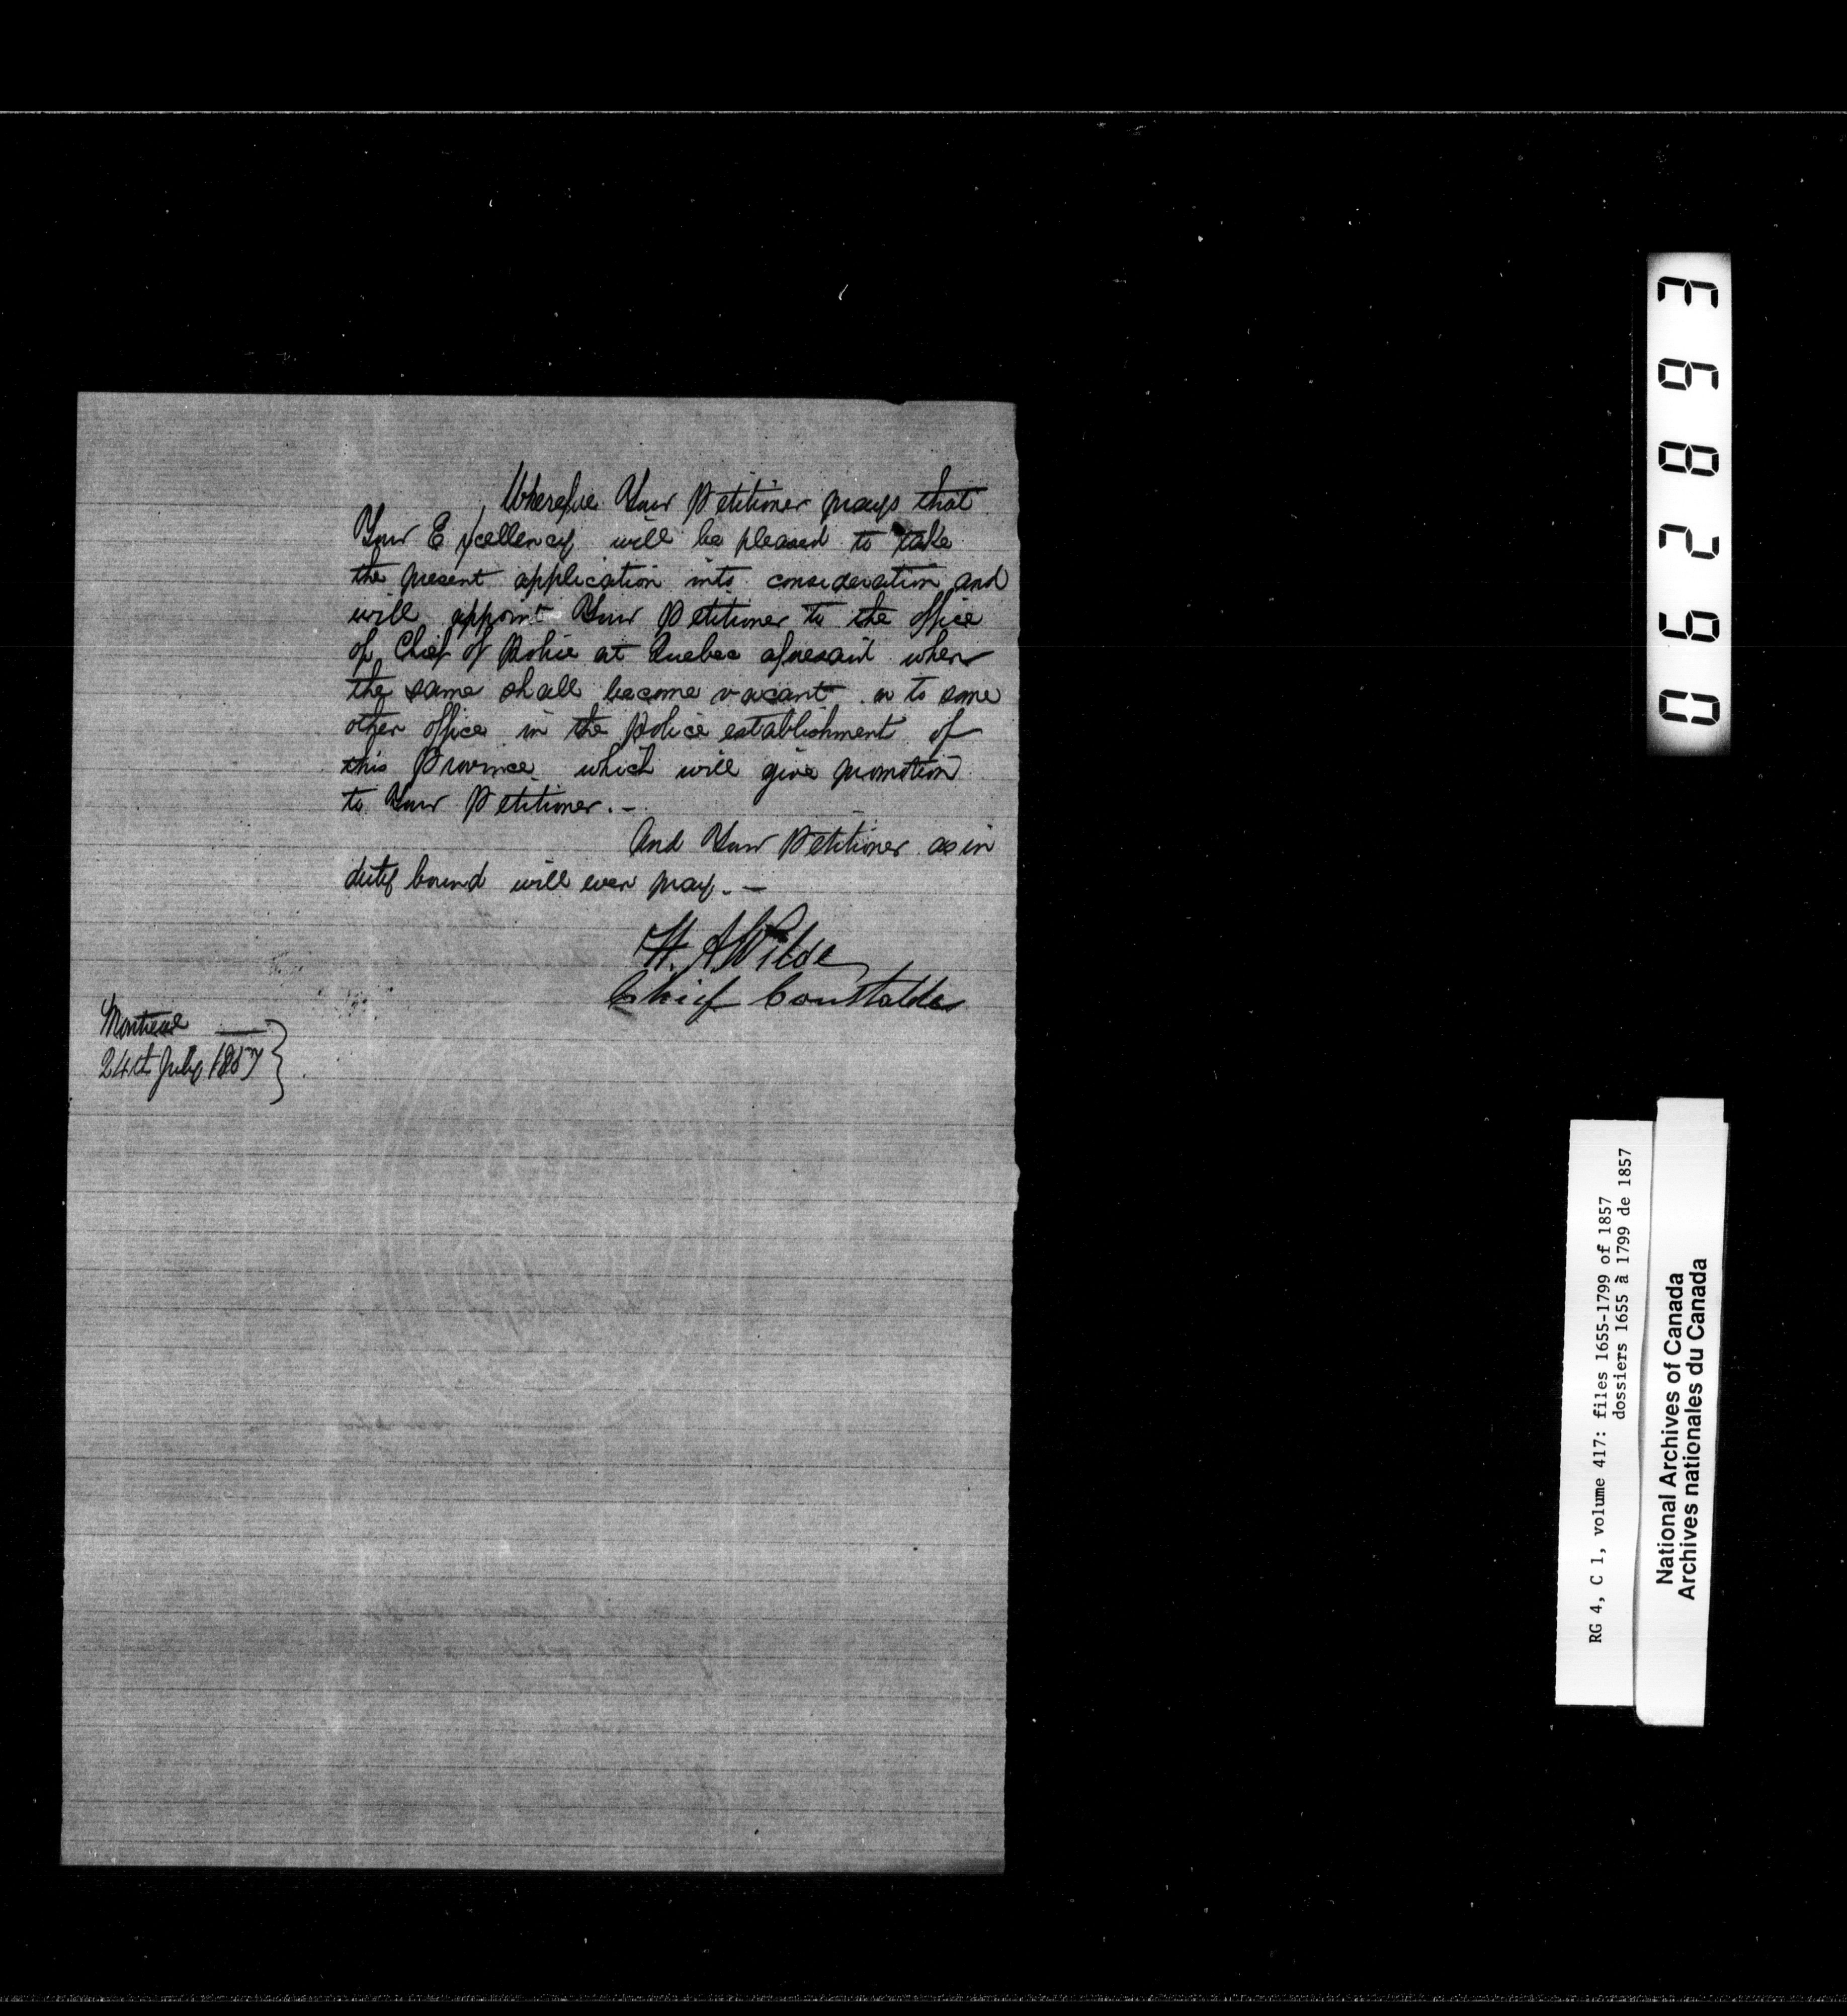 Wherefore Your Petitioner prays that
Your Excellency will be pleased to take
the present application into consideration and
will appoint Your Petitioner to the office
of Chief of Police at Quebec aforesaid when
the same shall become vacant or to some
other office in the Police establishment of
this Province which will give promotion
to Your Petitioner. -
And Your Petitioner as in
duty bound will ever pray. -
H. A Wilde
Chief Constable
Montreal
24th July 1857
062893
RG 4, C 1, volume 417: files 1655-1799 of 1857
dossiers 1655 à 1799 de 1857
National Archives of Canada
Archives nationales du Canada